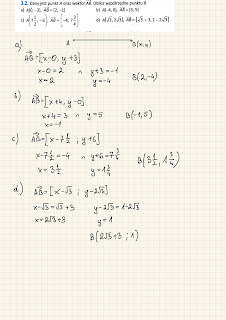 3.2. Dany jest punkt A oraz wektor AB. Oblicz współrzędne punktu B.
a) A(0, -3), AB = [2, -1]
b) A(-4, 0), AB = [3, 5]
c) A(7 1/2, -6), AB = [-4, 7 3/4]
d) A(√3, 2√3), AB = [√3 + 3, 1 - 2√3]
A B(x,y)
a) AB=[x-0, y+3]
x-0=2 ∧ y+3=-1
x=2 y=-4 B(2,-4)
b) AB=[x+4, y-0]
x+4=3 ∧ y=5 B(-1,5)
x=-1
c) AB=[x-7 1/2 ; y+6]
x-7 1/2=-4 ∧ y+6=7 3/4
x=3 1/2 y=1 3/4 B(3 1/2, 1 3/4)
d) AB=[x-√3 ; y-2√3]
x-√3=√3+3 y-2√3=1-2√3
x=2√3+3 y=1
B(2√3+3 ; 1)